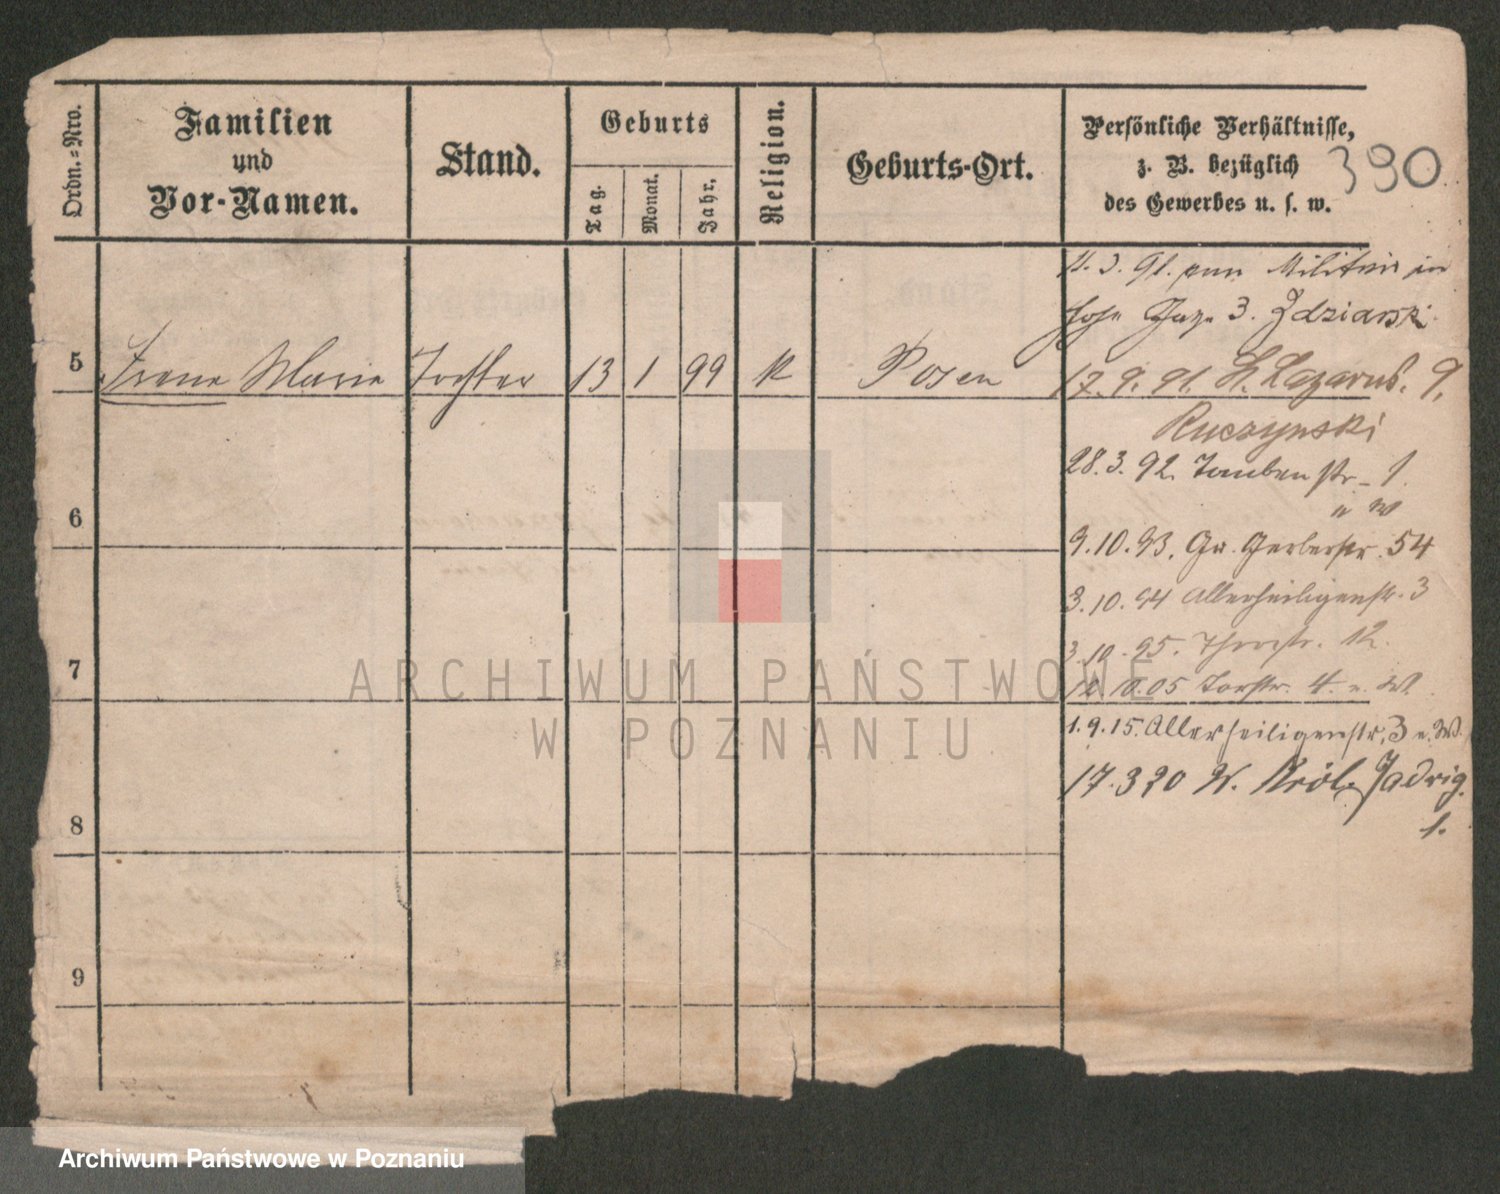 Ordn.-Nro.
Familien
und
Vor-Namen.
Stand.
Geburts
Tag.
Monat.
Jahr.
Religion.
Geburts-Ort.
Persönliche Verhältnisse,
z. B. bezüglich
des Gewerbes u. s. w.
390
3. 91. zum Militair in
3. Zdziarski
5 Irene Marie Tochter 13 1 99 K Posen
17. 9. 91. St. Lazarus. 9.
Ruczynski
28. 3. 92. Taubenstr. 1.
u W
6
9. 10. 93. Gr. Gerberstr. 54
3. 10. 94 Allerheiligenstr. 3
3. 10. 95. Thorstr. 12.
7
05 Torstr. 4. u. W.
1. 9. 15. Allerheiligenstr. 3 u. W.
17. 3 20 W. Król. Jadwig.
1.
8
9
ARCHIWUM PAŃSTWOWE
W POZNANIU
Archiwum Państwowe w Poznaniu